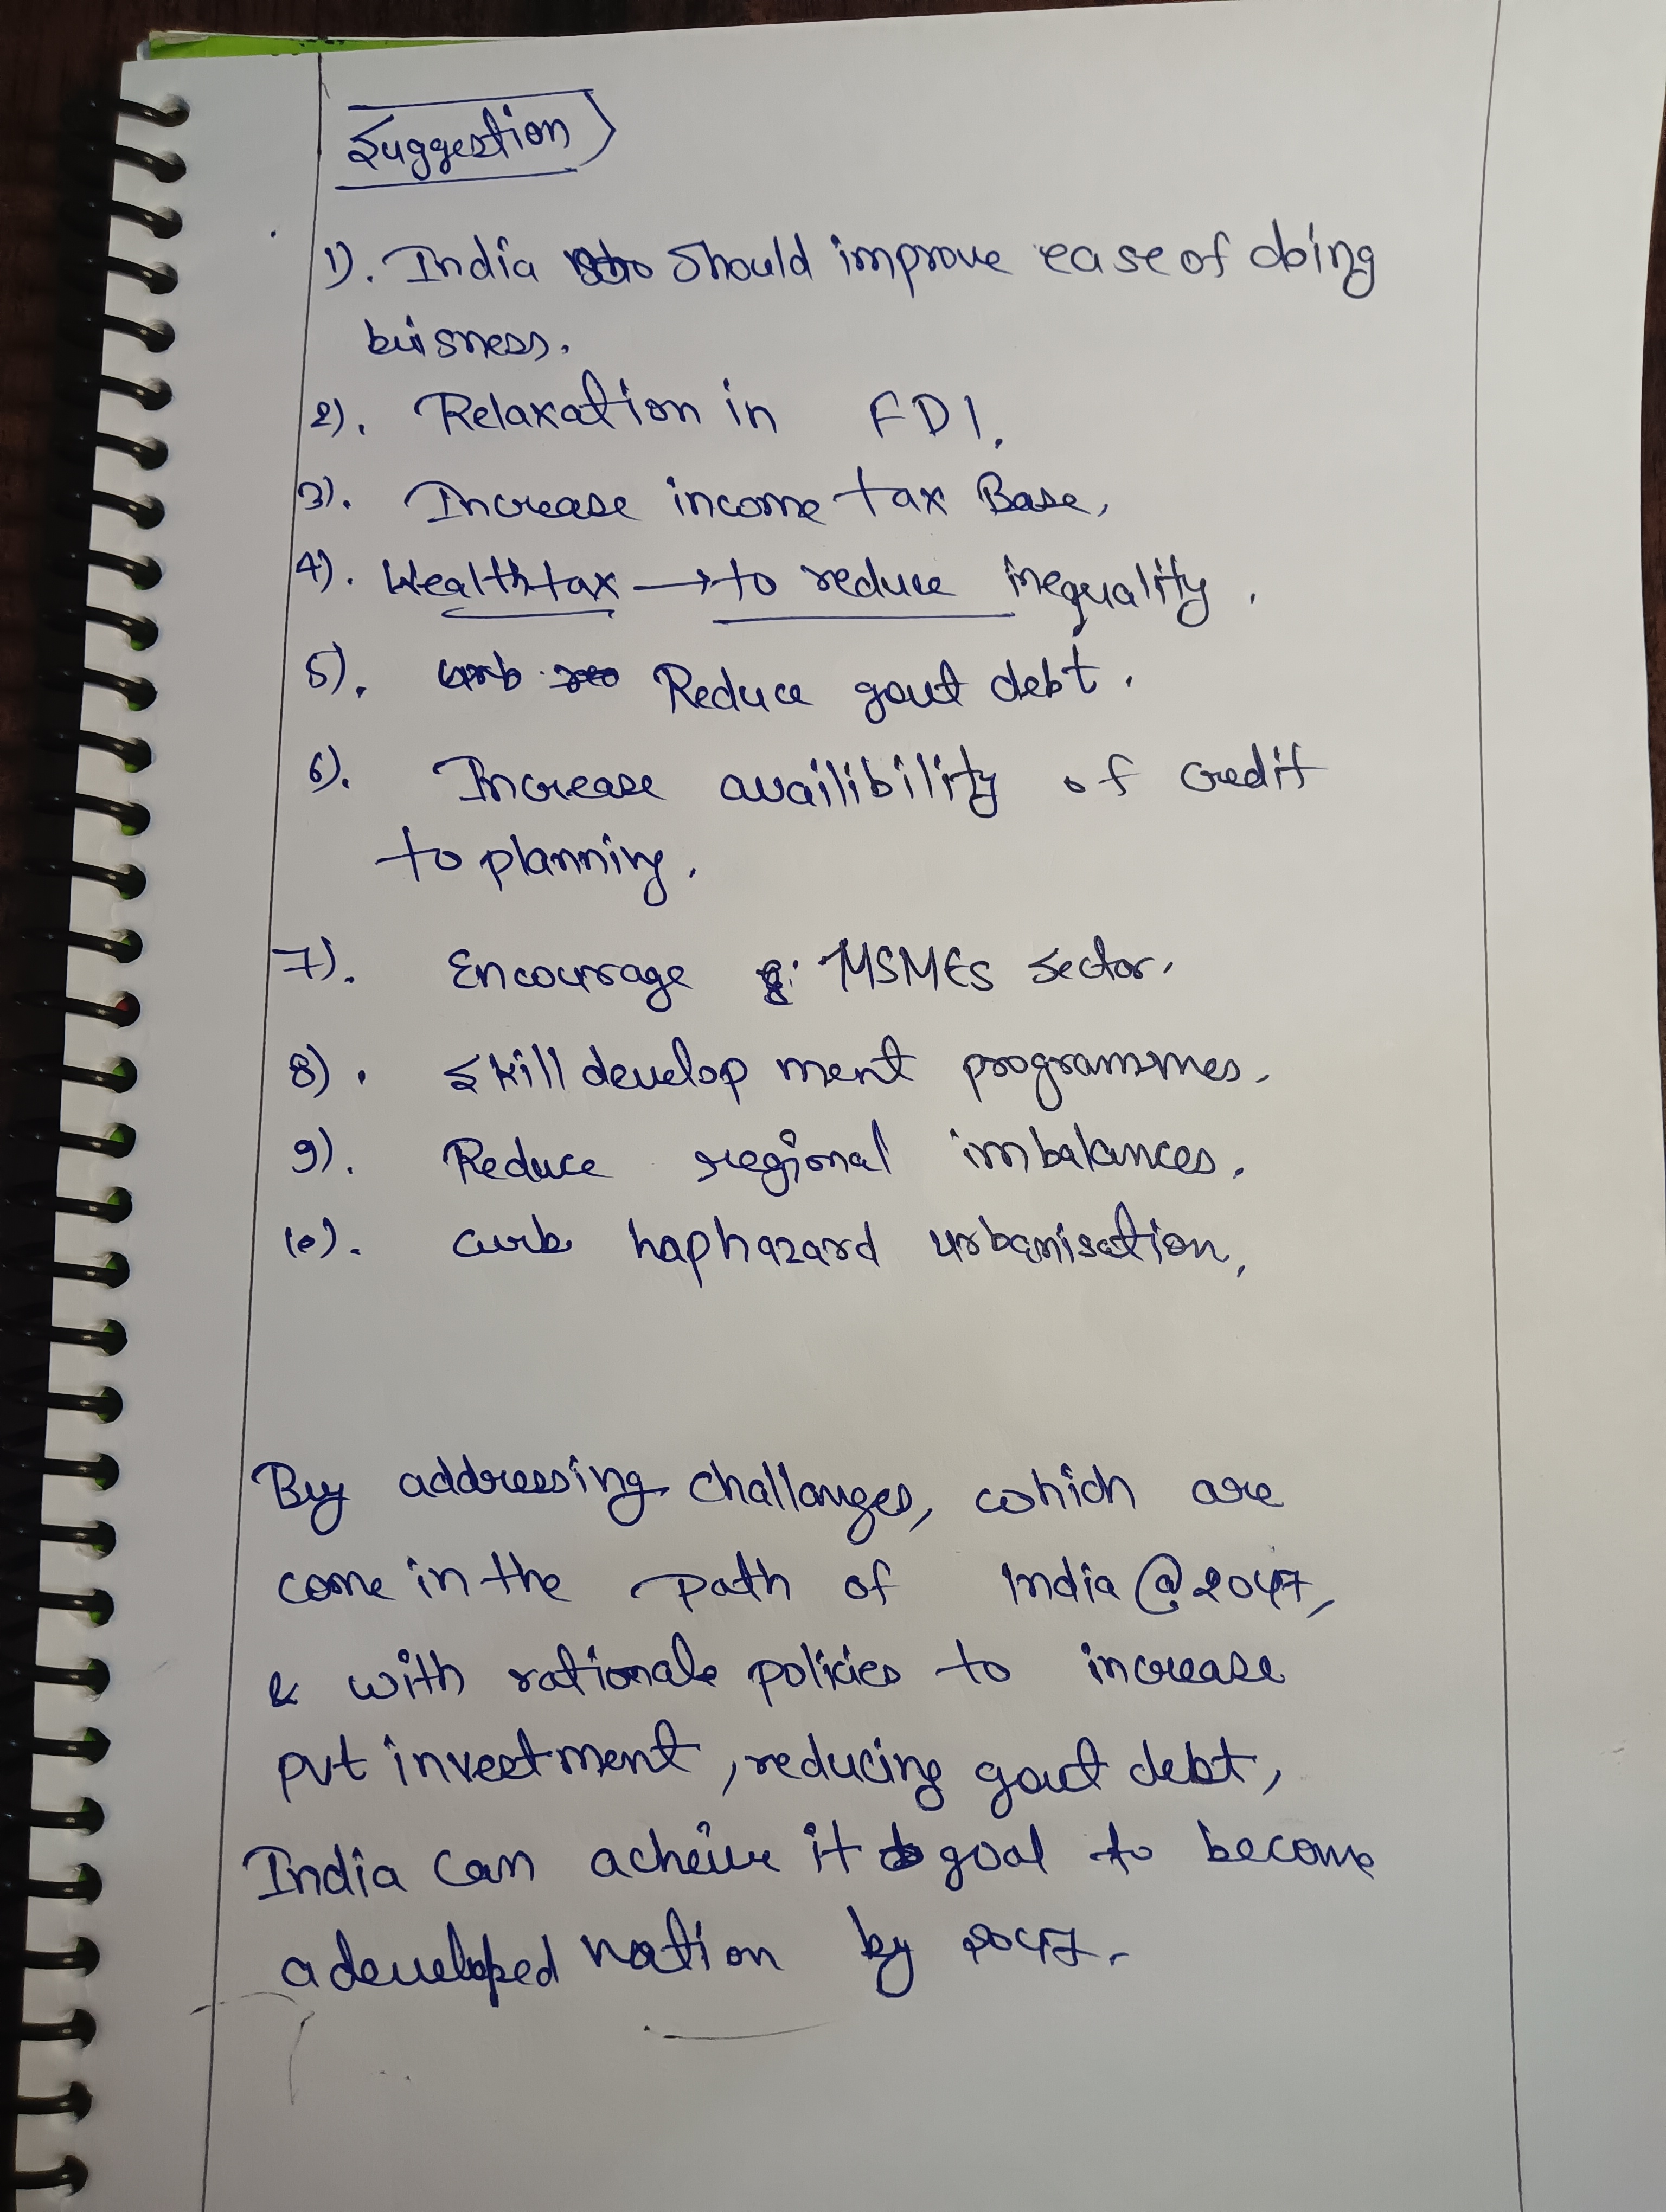 Suggestion
1). India should improve ease of doing
buisness.
2). Relaxation in FDI.
3). Increase income tax Base,
4). Wealth tax → to reduce inequality.
5). Reduce govt debt.
6). Increase availibility of credit
to planning.
7). Encourage MSMEs sector.
8). Skill development programmes.
9). Reduce regional imbalances.
10). curb haphazard urbanisation,
By addressing challanges, which are
come in the path of India @2047,
& with rationale policies to increase
pvt investment, reducing govt debt,
India can acheive it goal to become
a developed nation by 2047.